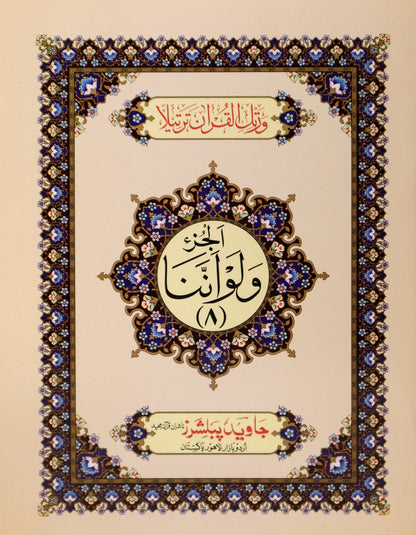 وَرَتِّلِ الْقُرْاٰنَ تَرْتِيْلًا
اَلْجُزْءُ
وَلَوْ اَنَّنَا
(٨)
جاوید پبلشرز ناشران قرآن مجید
اردو بازار لاهور پاکستان